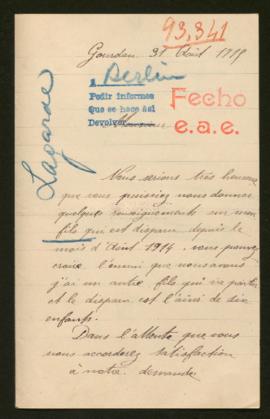 93,341
Gourdon 31 Août 1918
a Berlin
Pedir informes
Que se hace así
Devolver
Fecho
e.a.e.
Lagarde
Monsieur
Nous serions très heureux
que vous puissiez nous donner
quelques renseignements sur mon
fils qui est disparu depuis le
mois d'Août 1914. vous pouvez
croire l'ennui que nous avons
j'ai un autre fils qui va partir
et le disparu est l'ainé de six
enfants.
Dans l'attente que vous
nous accorderez satisfaction
à notre demande